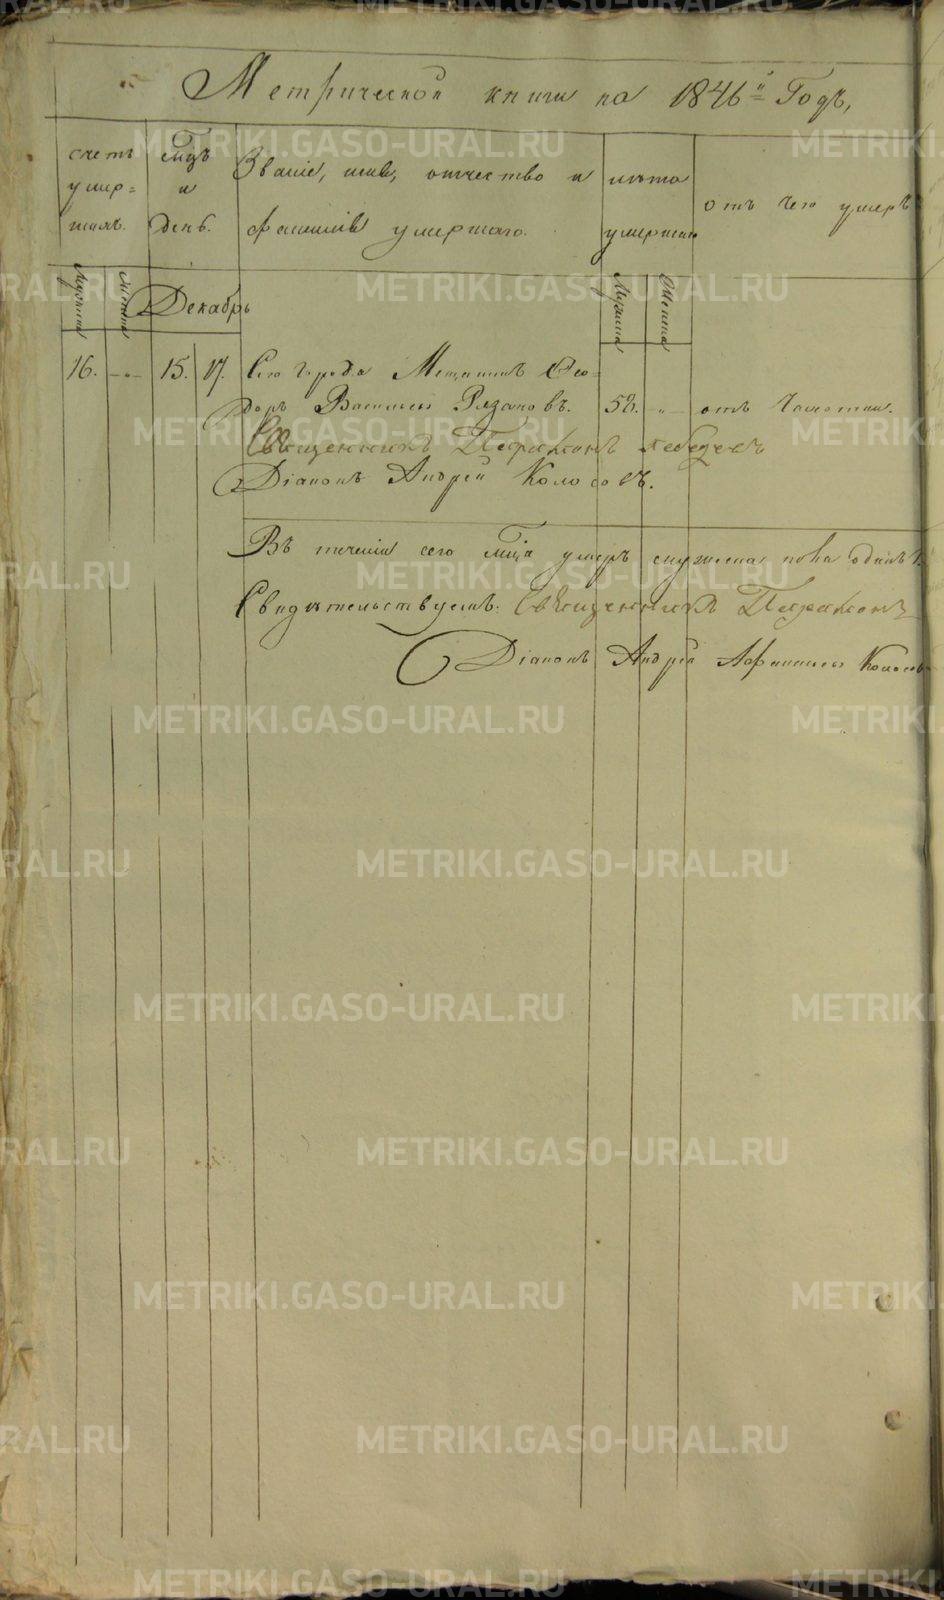 Метрической книги на 1846й Годъ,
счетъ умер=шихъ.
Мцъ и День.
Званіе, имя, отчество и фамилія умершаго.
лѣта умершаго
отъ чего умеръ
Мужеска
Женска
Декабрь
Мужеска
Женска
16. 15. 17. Сего города Мещанинъ Ѳео=
доръ Васильевъ Рязановъ. 58. отъ Чахотки.
Священникъ Парамонъ Лебедевъ
Діаконъ Андрей Колосовъ.
Въ теченіи сего Мца умеръ мужеска пола одинъ 1.
Свидѣтельствуемъ: Священникъ Парамонъ
Діаконъ Андрей Афанасьевъ Колосовъ
METRIKI.GASO-URAL.RU